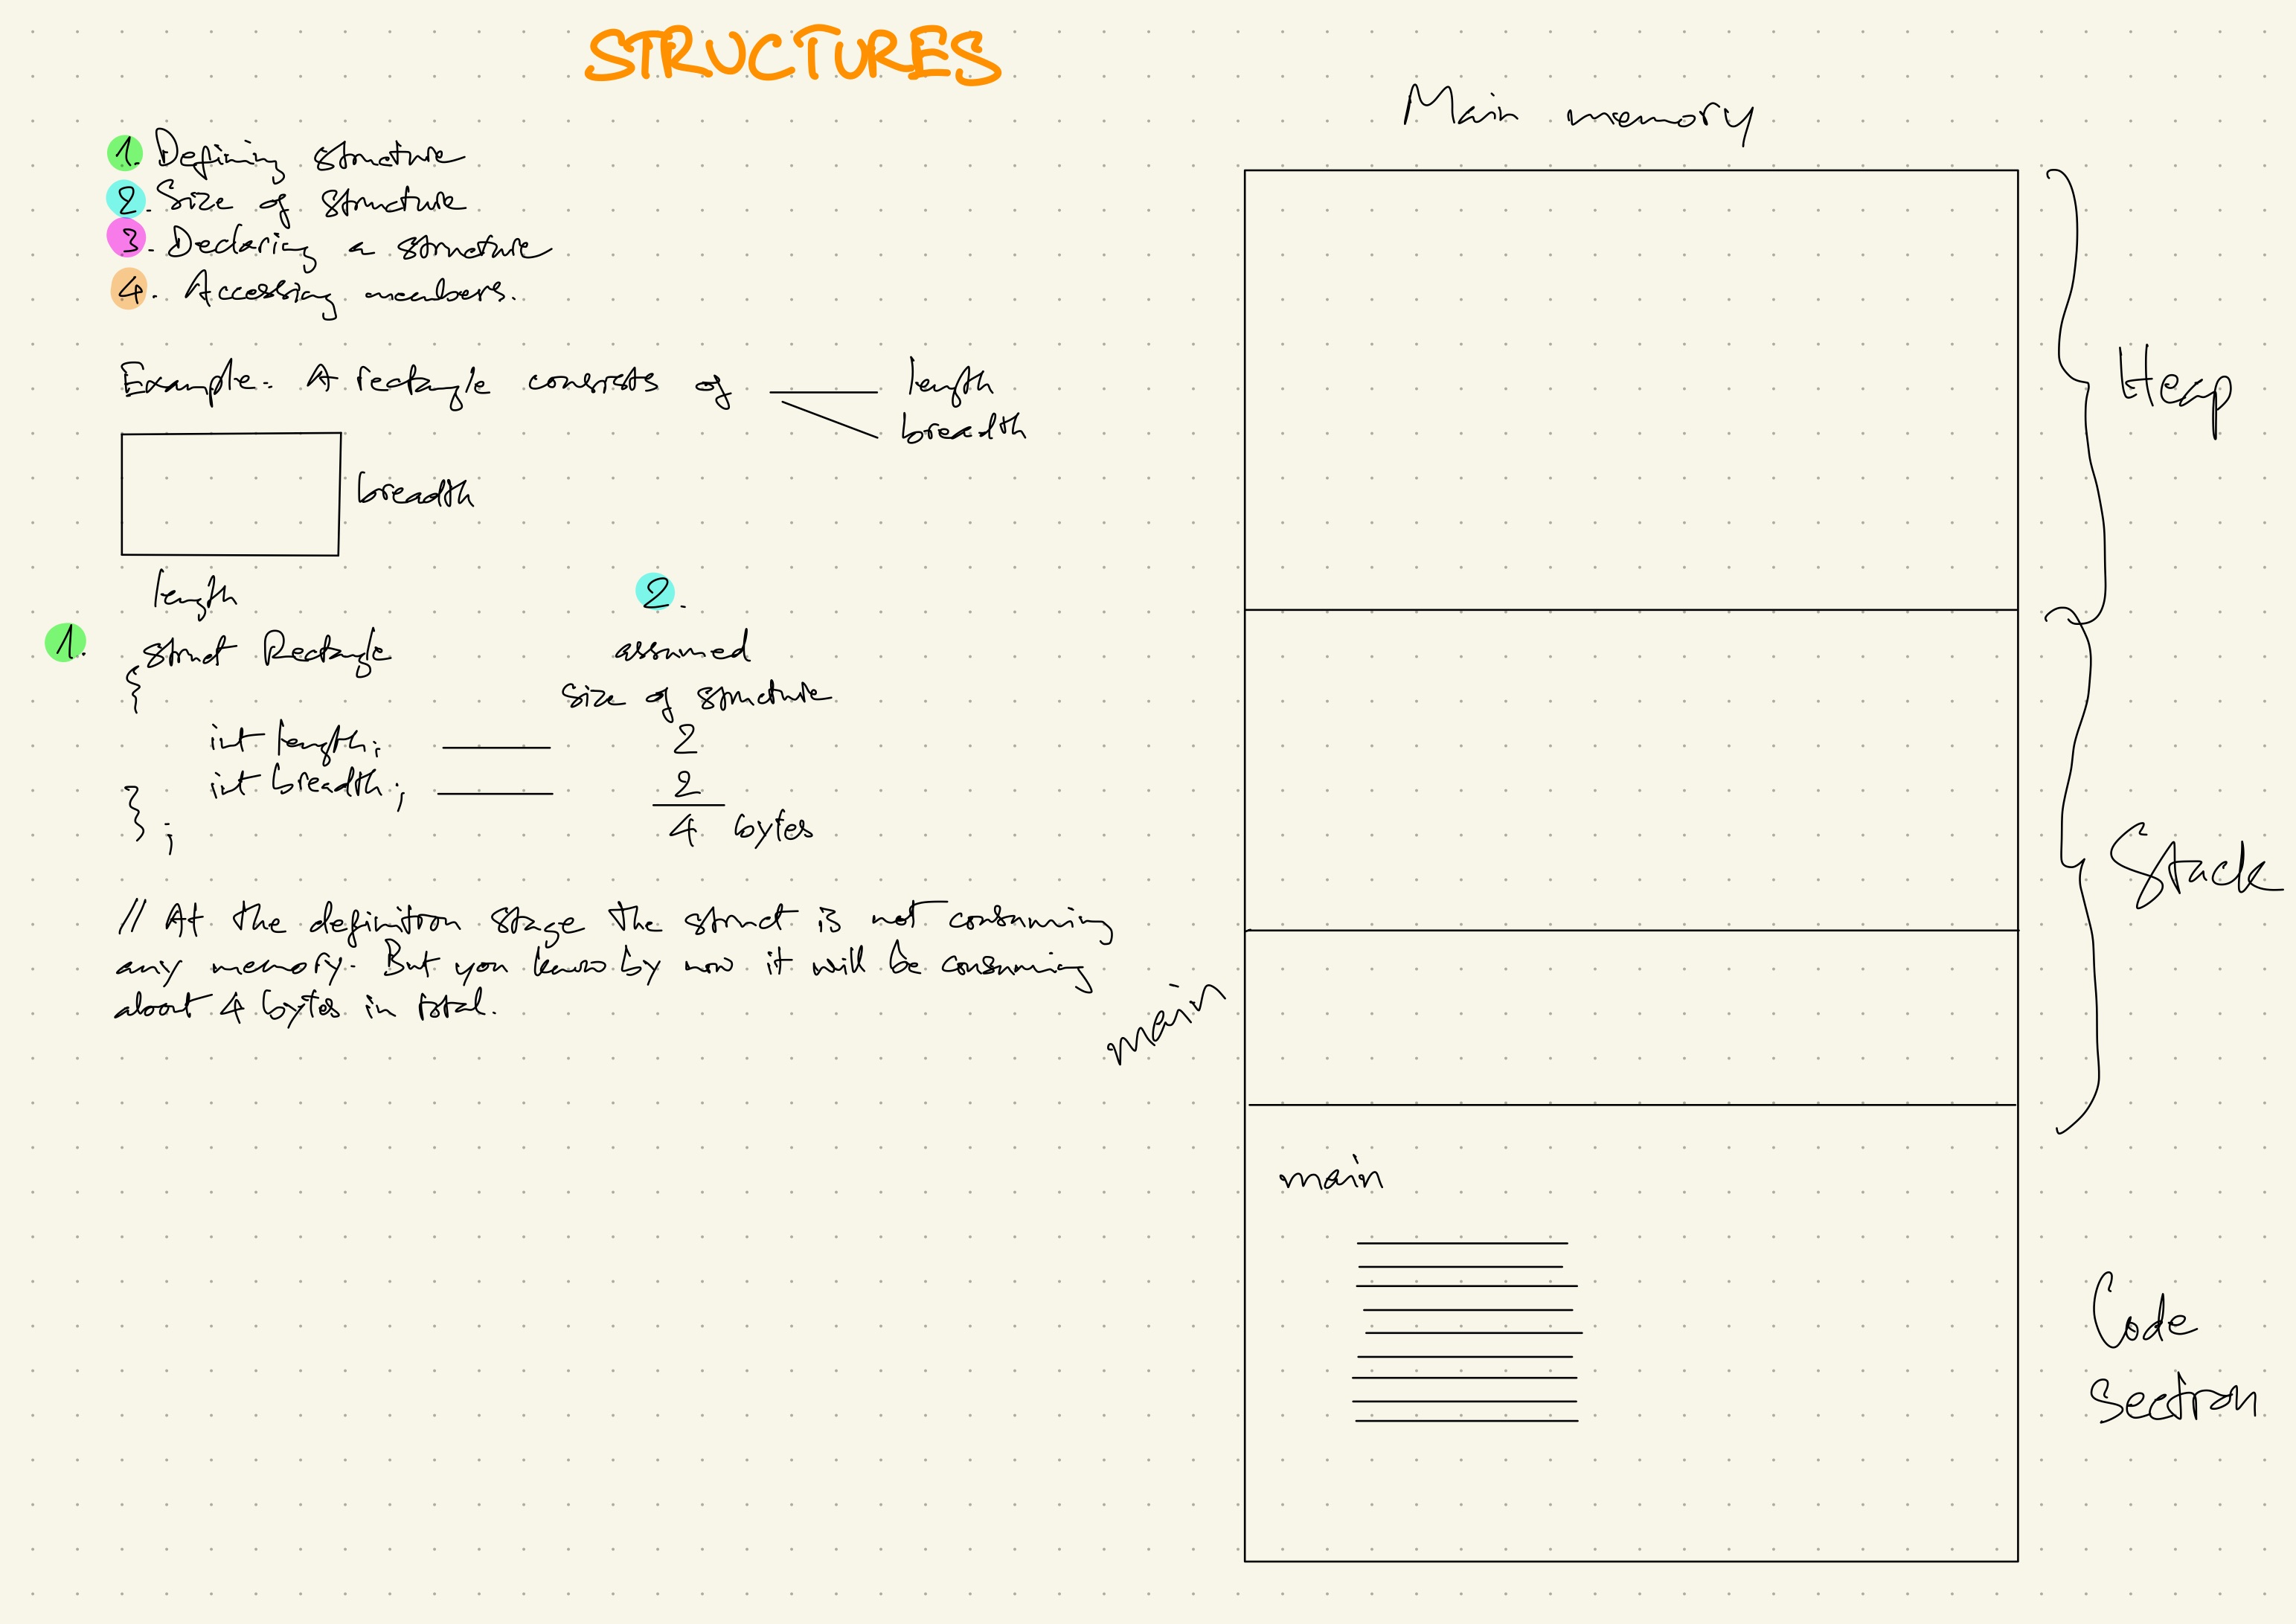 STRUCTURES
1. Defining structure
2. Size of structure
3. Declaring a structure
4. Accessing members.
Example. A rectangle consists of length
breadth
breadth
length
1. struct Rectangle
{
int length;
int breadth;
};
2.
assumed
size of structure
2
2
4 bytes
// At the definition stage the struct is not consuming
any memory. But you know by now it will be consuming
about 4 bytes in total.
Main memory
Heap
Stack
main
main
Code
Section